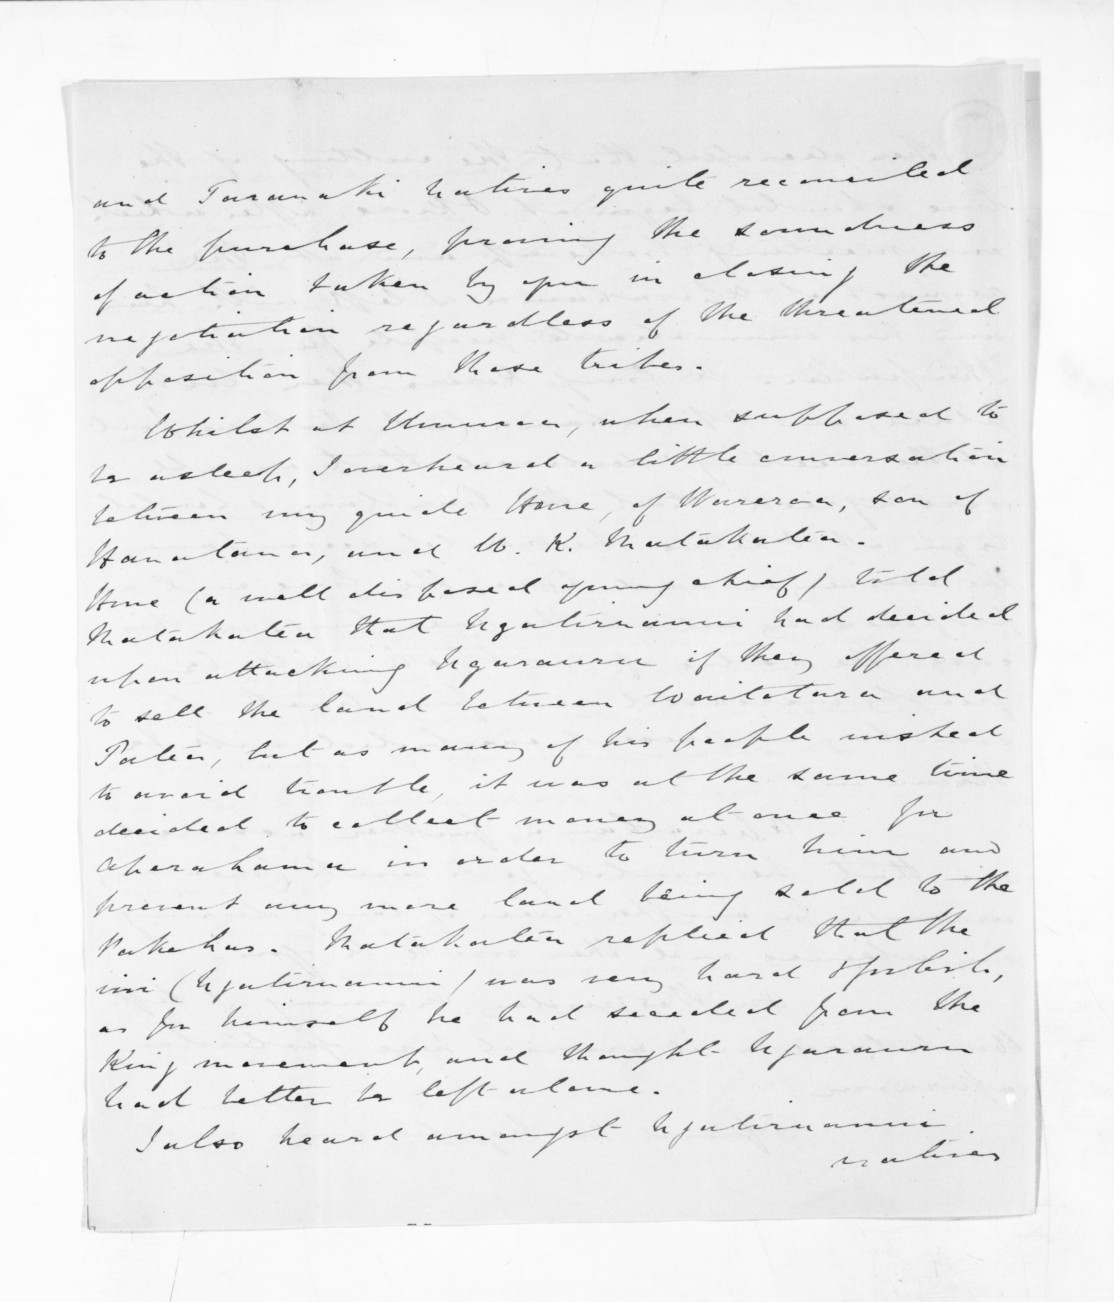 and Taranaki Natives quite reconciled
to the purchase, proving the soundness
of action taken by you in closing the
negotiation regardless of the threatened
opposition from those tribes.
Whilst at Umuroa, when supposed to
be asleep, I overheard a little conversation
between my guide Hone, of Wareroa, son of
Hanatana, and W. K. Matakatea.
Hone (a well disposed young chief) told
Matakatea that Ngatiruanui had decided
upon attacking Ngarauru if they offered
to sell the land between Waitotara and
Patea, but as many of his people wished
to avoid trouble, it was at the same time
decided to collect money at once for
Aperahama in order to turn him and
prevent any more land being sold to the
Pakehas. Matakatea replied that the
iwi (Ngatiruanui) was very hard &
as for himself he had seceded from the
King movement, and thought Ngarauru
had better be left alone.
I also heard amongst Ngatiruanui
natives